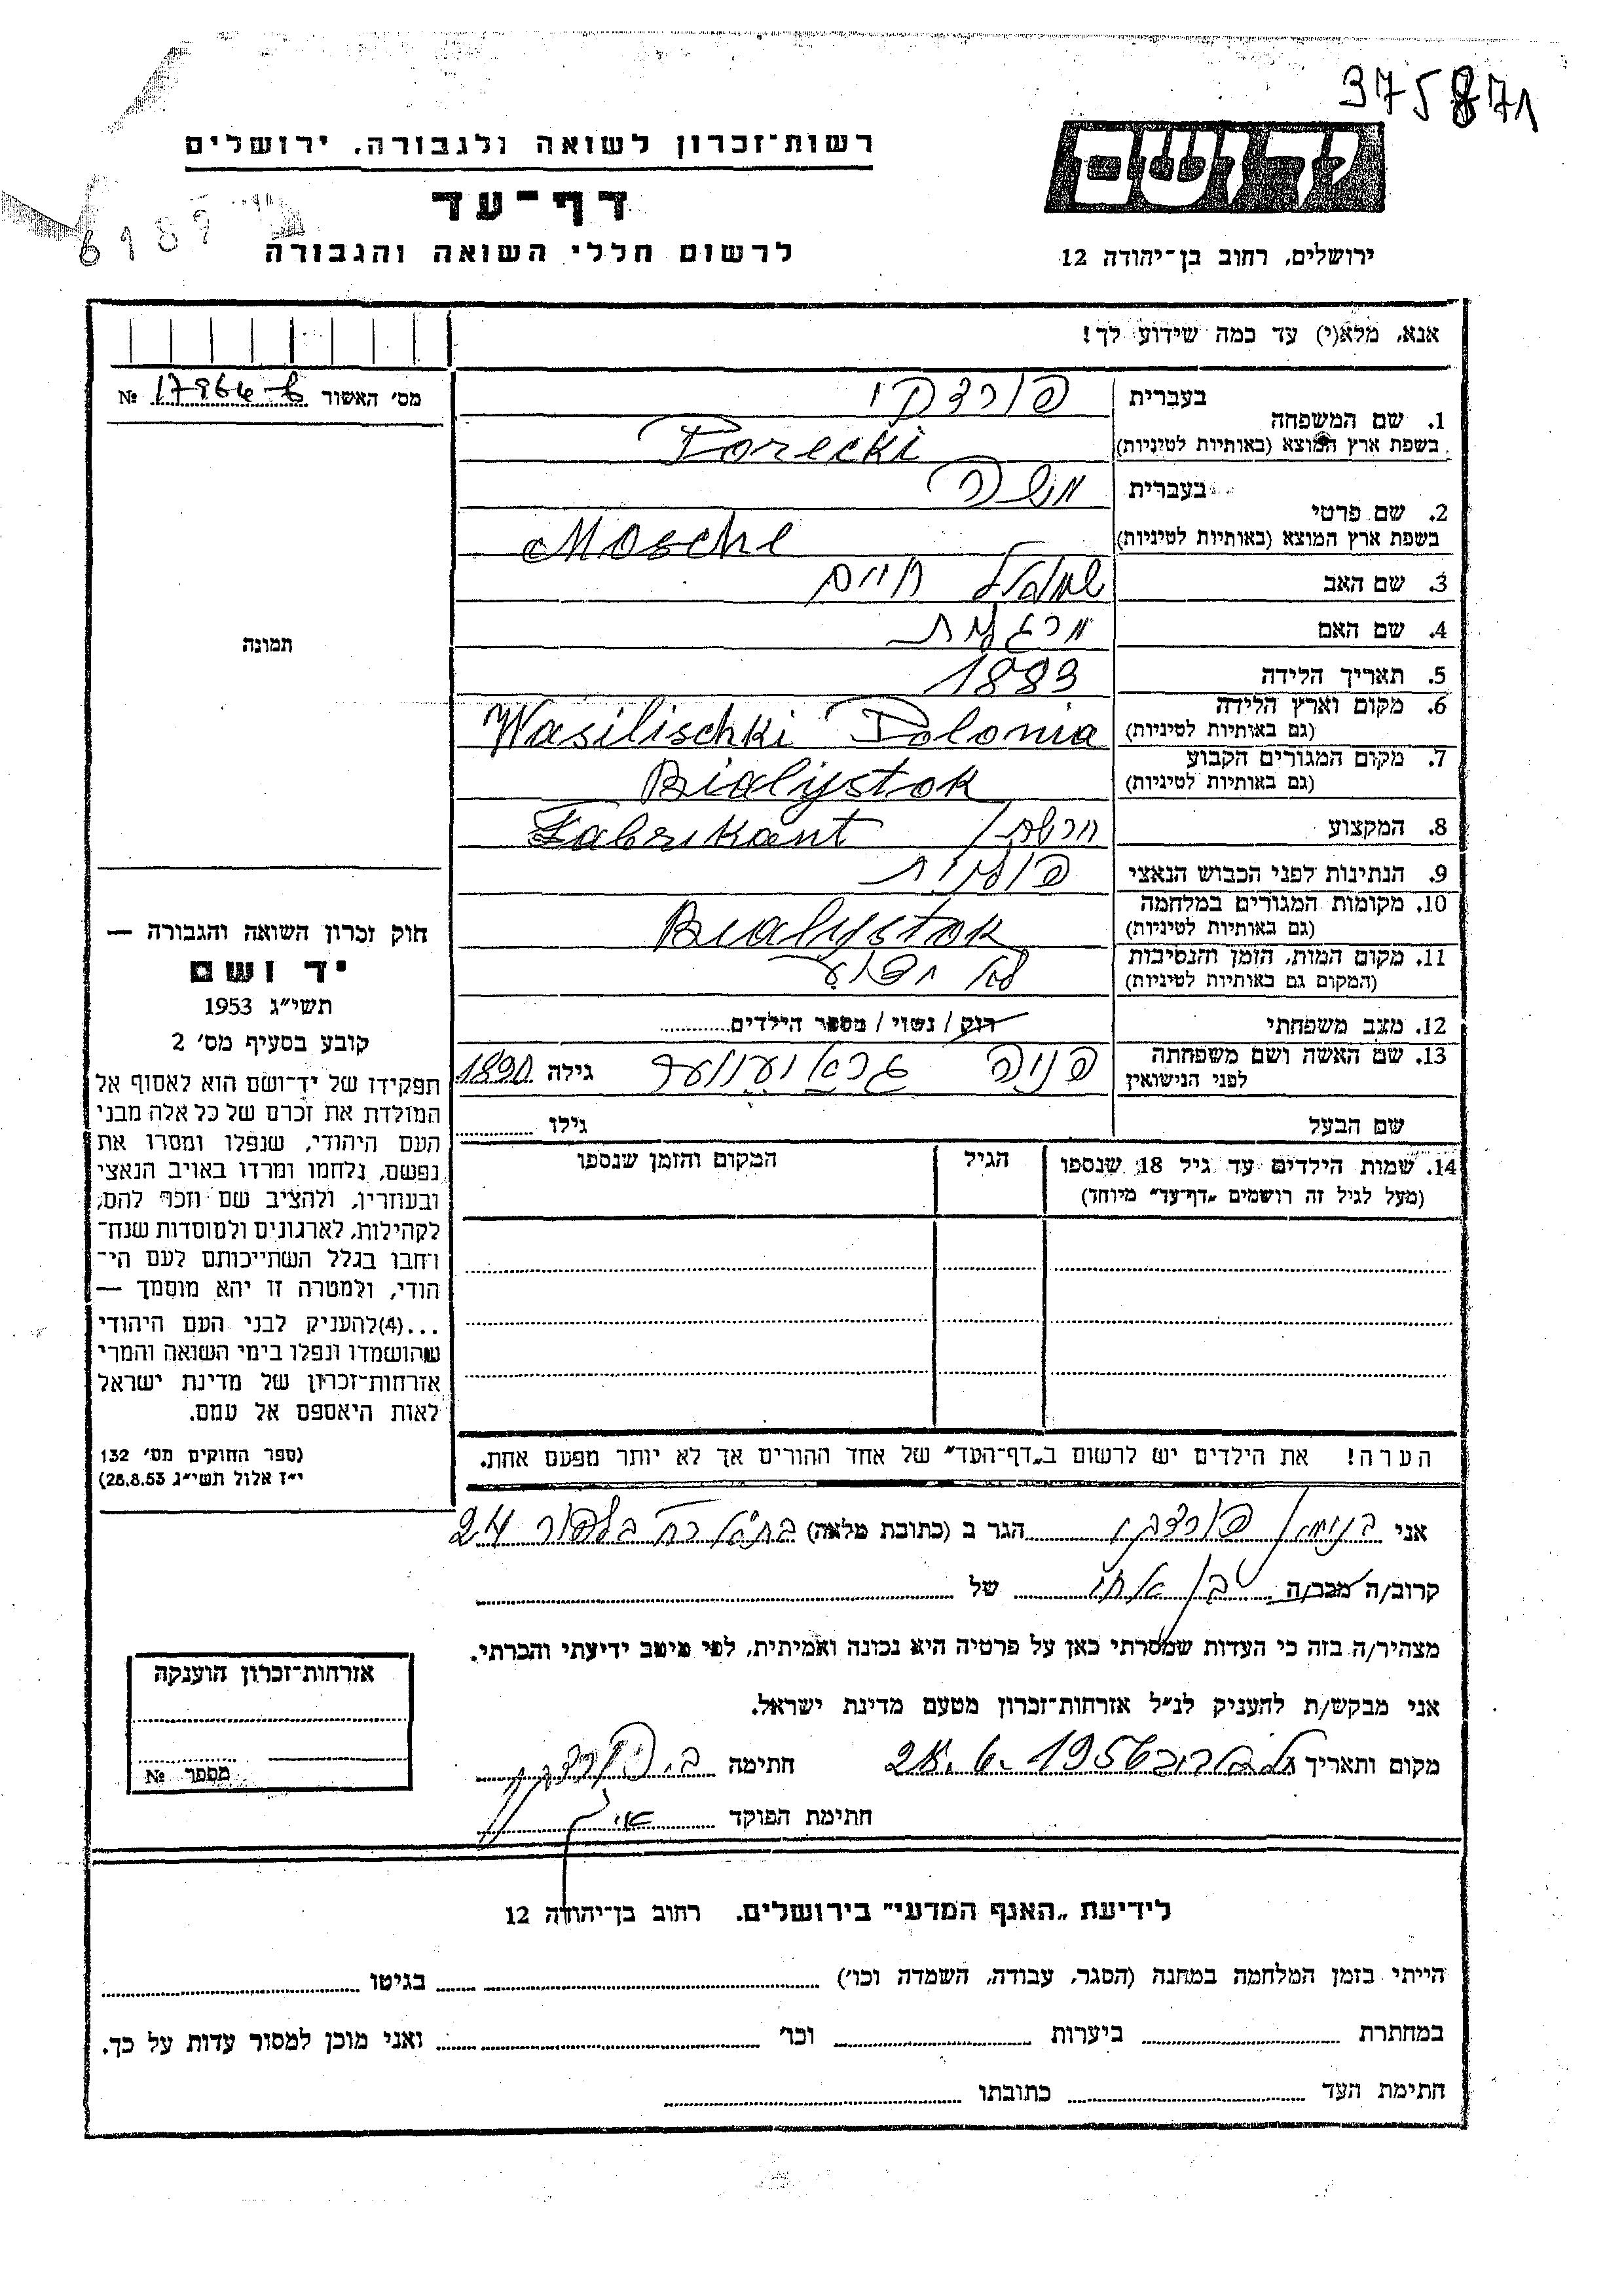 375871
רשות־זכרון לשואה ולגבורה, ירושלים
דף־עד
לרשום חללי השואה והגבורה
יד ושם
ירושלים, רחוב בן־יהודה 12
אנא, מלא(י) עד כמה שידוע לך!
מס' האשור №
1. שם המשפחה
בעברית פורצקי
בשפת ארץ המוצא (באותיות לטיניות) Porecki
2. שם פרטי
בעברית משה
בשפת ארץ המוצא (באותיות לטיניות) Mosche
3. שם האב שמואל חיים
4. שם האם מרגלית
5. תאריך הלידה 1883
6. מקום וארץ הלידה
(גם באותיות לטיניות) Wasilischki Polonia
7. מקום המגורים הקבוע
(גם באותיות לטיניות) Bialystok
8. המקצוע חרשתן / Fabrikant
9. הנתינות לפני הכבוש הנאצי פולנית
10. מקומות המגורים במלחמה
(גם באותיות לטיניות) Bialystok
11. מקום המות, הזמן והנסיבות
(המקום גם באותיות לטיניות) לא ידוע
12. מצב משפחתי רוק / נשוי / מספר הילדים
13. שם האשה ושם משפחתה
לפני הנישואין פניה גילה 1890
שם הבעל גילו
14. שמות הילדים עד גיל 18 שנספו
(מעל לגיל זה רושמים „דף־עד" מיוחד)
הגיל
המקום והזמן שנספו
הערה! את הילדים יש לרשום ב„דף־העד" של אחד ההורים אך לא יותר מפעם אחת.
תמונה
חוק זכרון השואה והגבורה —
יד ושם
תשי"ג 1953
קובע בסעיף מס' 2
תפקידו של יד־ושם הוא לאסוף אל
המולדת את זכרם של כל אלה מבני
העם היהודי, שנפלו ומסרו את
נפשם, נלחמו ומרדו באויב הנאצי
ובעוזריו, ולהציב שם וזכר להם,
לקהילות, לארגונים ולמוסדות שנח־
רבו בגלל השתייכותם לעם הי־
הודי, ולמטרה זו יהא מוסמך —
...(4)להעניק לבני העם היהודי
שהושמדו ונפלו בימי השואה והמרי
אזרחות־זכרון של מדינת ישראל
לאות היאספם אל עמם.
(ספר החוקים מס' 132
י"ז אלול תשי"ג 28.8.53)
אני בנימין פורצקי הגר ב (כתובת מלאה) בלפור 24
קרוב/ה מכר/ה בן אחי של
מצהיר/ה בזה כי העדות שמסרתי כאן על פרטיה היא נכונה ואמיתית, לפי מיטב ידיעתי והכרתי.
אני מבקש/ת להעניק לנ"ל אזרחות־זכרון מטעם מדינת ישראל.
מקום ותאריך 1956 חתימה ב. פורצקי
חתימת הפוקד
אזרחות־זכרון הוענקה
מספר №
לידיעת „האגף המדעי" בירושלים. רחוב בן־יהודה 12
הייתי בזמן המלחמה במחנה (הסגר, עבודה, השמדה וכו') בגיטו
במחתרת ביערות וכו' ואני מוכן למסור עדות על כך.
חתימת העד כתובתו